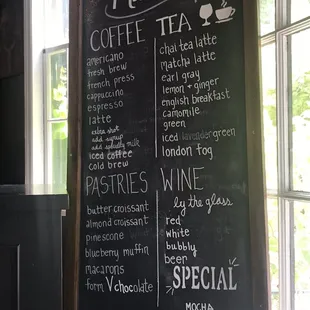 COFFEE
americano
fresh brew
french press
cappuccino
espresso
latte
extra shot
add syrup
add specialty milk
iced coffee
cold brew
TEA
chai tea latte
matcha latte
earl gray
lemon + ginger
english breakfast
camomile
green
iced lavender green
london fog
PASTRIES
butter croissant
almond croissant
pinescone
blueberry muffin
macarons
form V chocolate
WINE
by the glass
red
white
bubbly
beer
SPECIAL
MOCHA